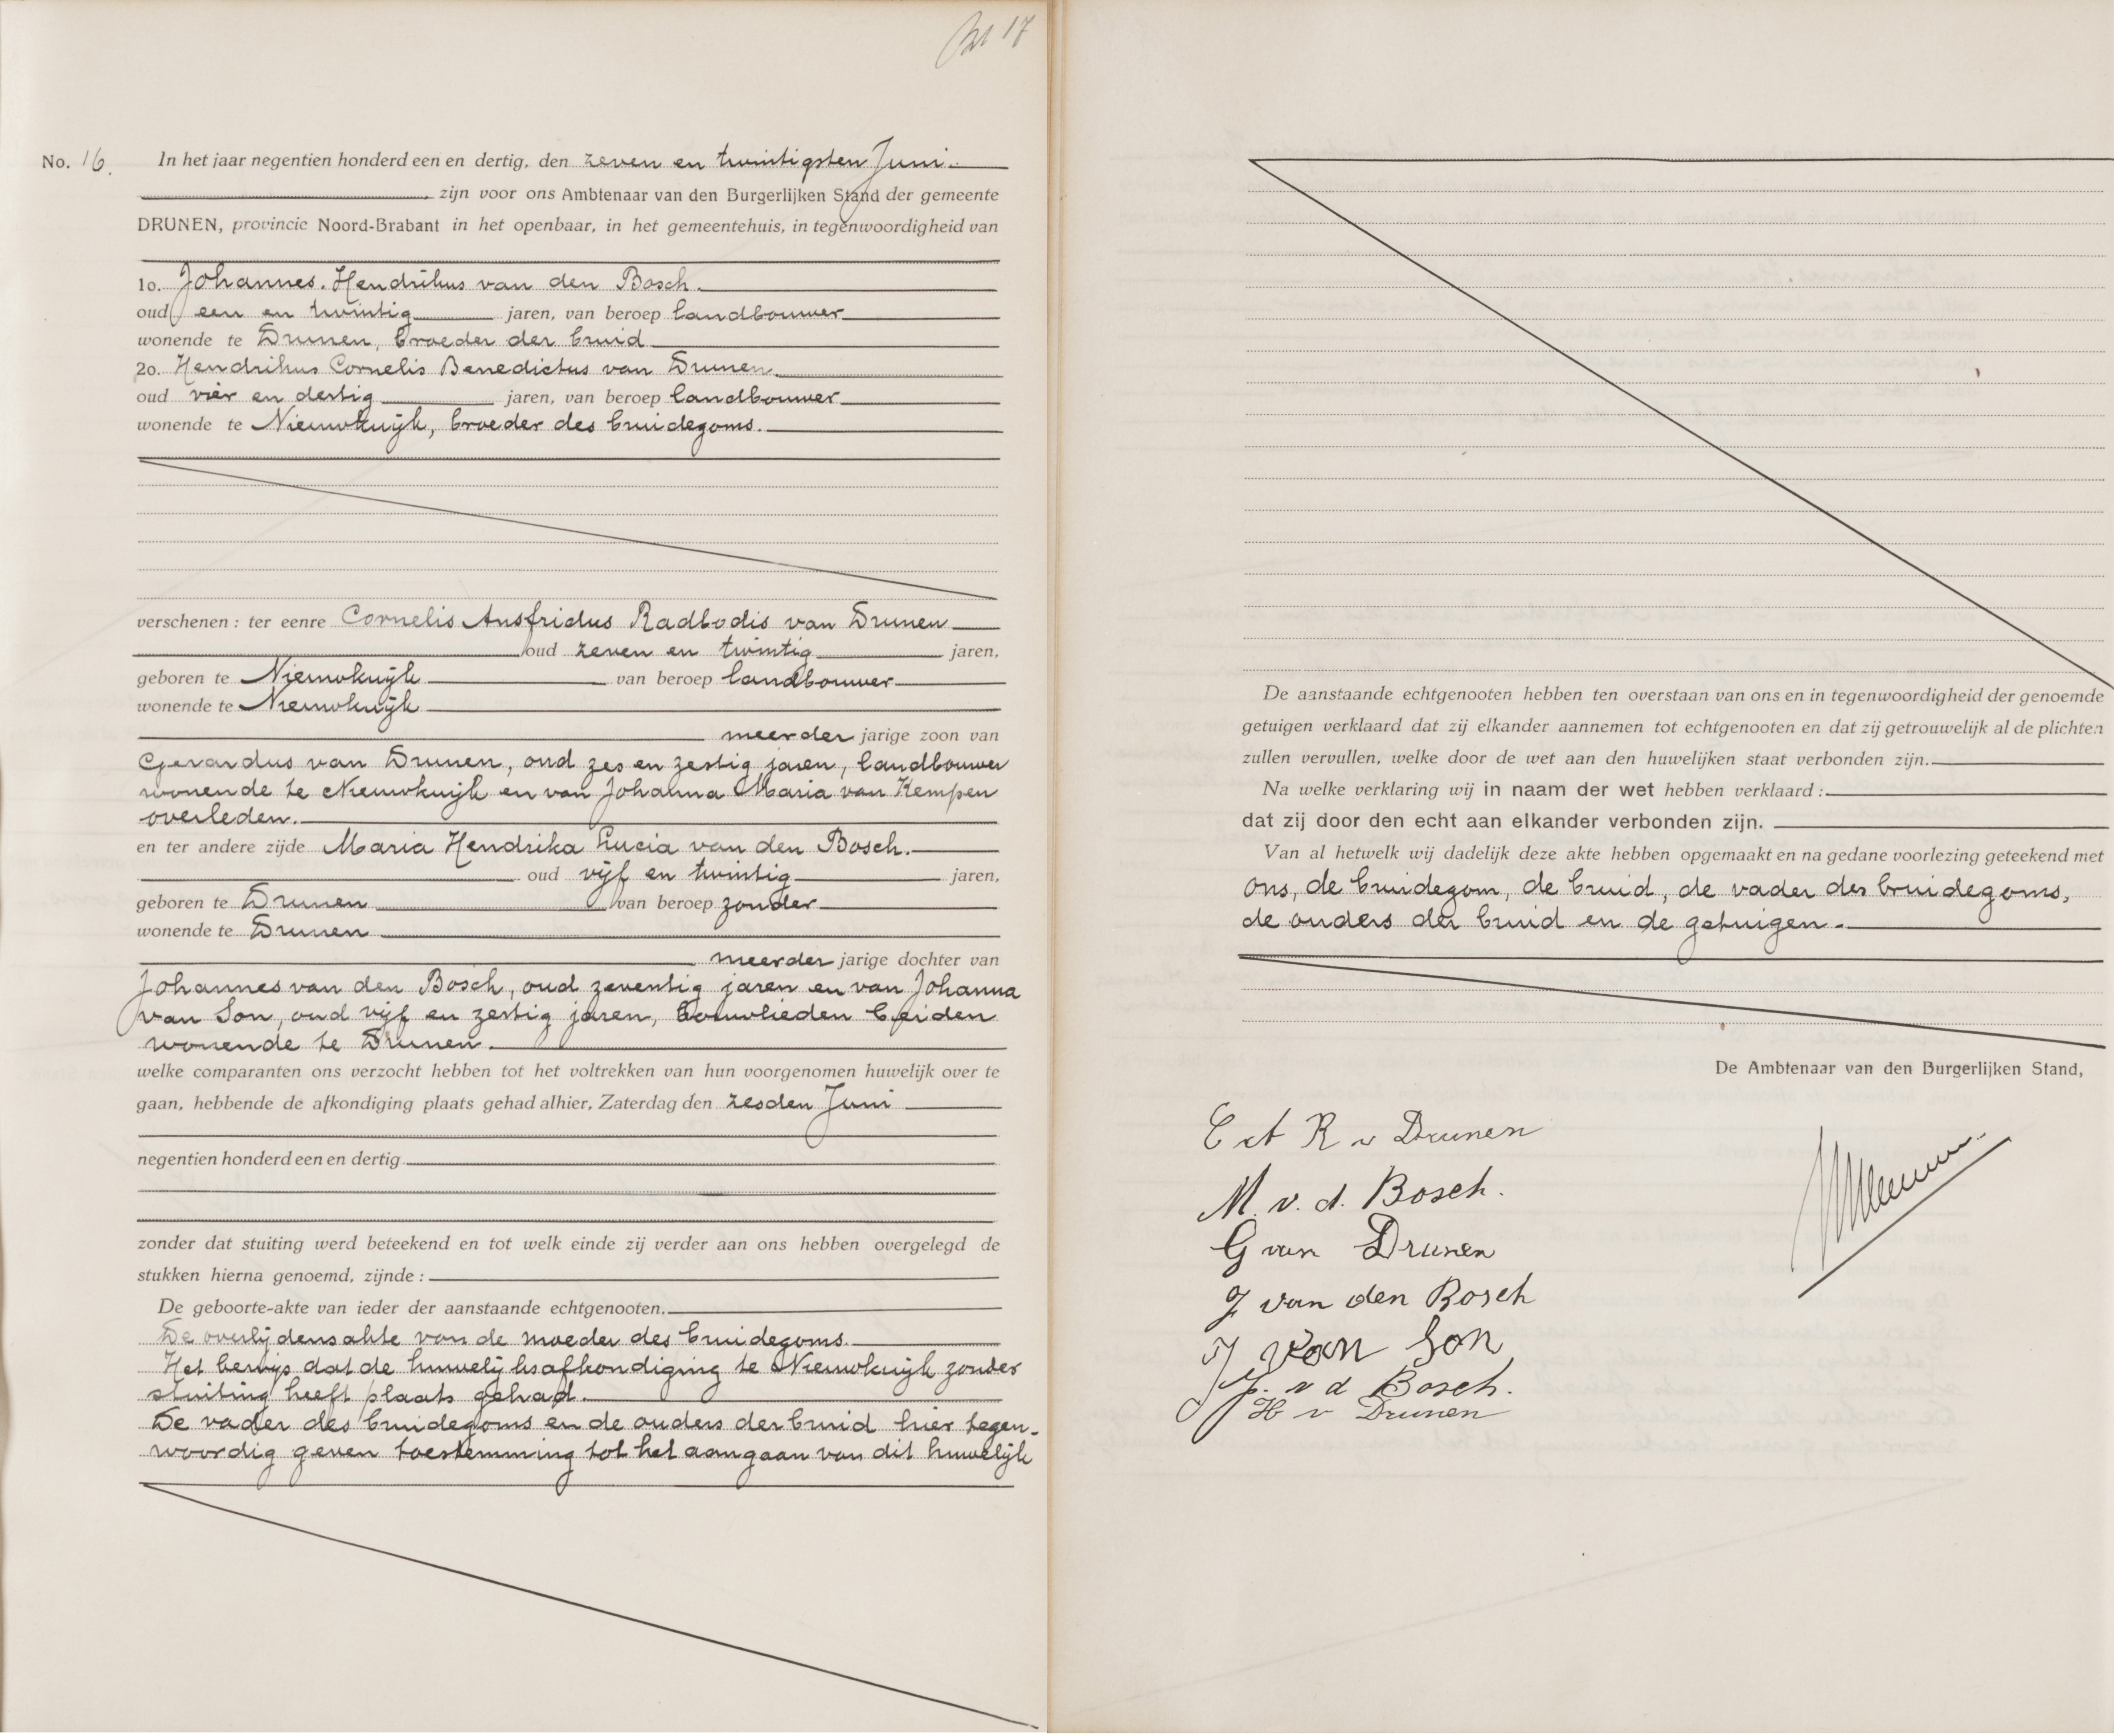 17
No. 16. In het jaar negentien honderd een en dertig, den zeven en twintigsten Juni.
zijn voor ons Ambtenaar van den Burgerlijken Stand der gemeente
DRUNEN, provincie Noord-Brabant in het openbaar, in het gemeentehuis, in tegenwoordigheid van
1o. Johannes. Hendrikus van den Bosch.
oud een en twintig jaren, van beroep landbouwer
wonende te Drunen, broeder der bruid
2o. Hendrikus Cornelis Benedictus van Drunen.
oud vier en dertig jaren, van beroep landbouwer
wonende te Nieuwkuijk, broeder des bruidegoms.
verschenen: ter eenre Cornelis Ansfridus Radbodis van Drunen
oud zeven en twintig jaren,
geboren te Nieuwkuijk van beroep landbouwer
wonende te Nieuwkuijk
meerder jarige zoon van
Gerardus van Drunen, oud zes en zestig jaren, landbouwer
wonende te Nieuwkuijk en van Johanna Maria van Kempen
overleden.
en ter andere zijde Maria Hendrika Lucia van den Bosch.
oud vijf en twintig jaren,
geboren te Drunen van beroep zonder
wonende te Drunen
meerder jarige dochter van
Johannes van den Bosch, oud zeventig jaren en van Johanna
van Son, oud vijf en zestig jaren, bouwlieden beiden
wonende te Drunen.
welke comparanten ons verzocht hebben tot het voltrekken van hun voorgenomen huwelijk over te
gaan, hebbende de afkondiging plaats gehad alhier, Zaterdag den zesden Juni
negentien honderd een en dertig
zonder dat stuiting werd beteekend en tot welk einde zij verder aan ons hebben overgelegd de
stukken hierna genoemd, zijnde:
De geboorte-akte van ieder der aanstaande echtgenooten.
De overlijdensakte van de moeder des bruidegoms.
Het bewijs dat de huwelijksafkondiging te Nieuwkuijk zonder
stuiting heeft plaats gehad.
De vader des bruidegoms en de ouders der bruid hier tegen-
woordig geven toestemming tot het aangaan van dit huwelijk
De aanstaande echtgenooten hebben ten overstaan van ons en in tegenwoordigheid der genoemde
getuigen verklaard dat zij elkander aannemen tot echtgenooten en dat zij getrouwelijk al de plichten
zullen vervullen, welke door de wet aan den huwelijken staat verbonden zijn.
Na welke verklaring wij in naam der wet hebben verklaard:
dat zij door den echt aan elkander verbonden zijn.
Van al hetwelk wij dadelijk deze akte hebben opgemaakt en na gedane voorlezing geteekend met
ons, de bruidegom, de bruid, de vader des bruidegoms,
de ouders der bruid en de getuigen.
De Ambtenaar van den Burgerlijken Stand,
C A R v Drunen
M. v. d. Bosch.
G van Drunen
J van den Bosch
J van Son
J. v d Bosch.
H v Drunen